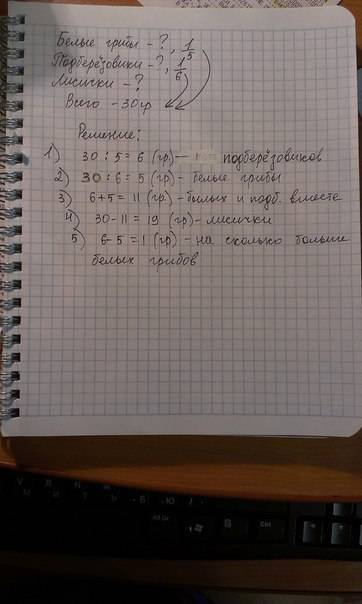 Белые грибы - ?, 1/5
Подберёзовики - ?, 1/6
Лисички - ?
Всего - 30 гр
Решение:
1) 30 : 5 = 6 (гр) - подберезовиков
2) 30 : 6 = 5 (гр) - белые грибы
3) 6 + 5 = 11 (гр) - былых и подб. вместе
4) 30 - 11 = 19 (гр) - лисички
5) 6 - 5 = 1 (гр) - на сколько больше
белых грибов